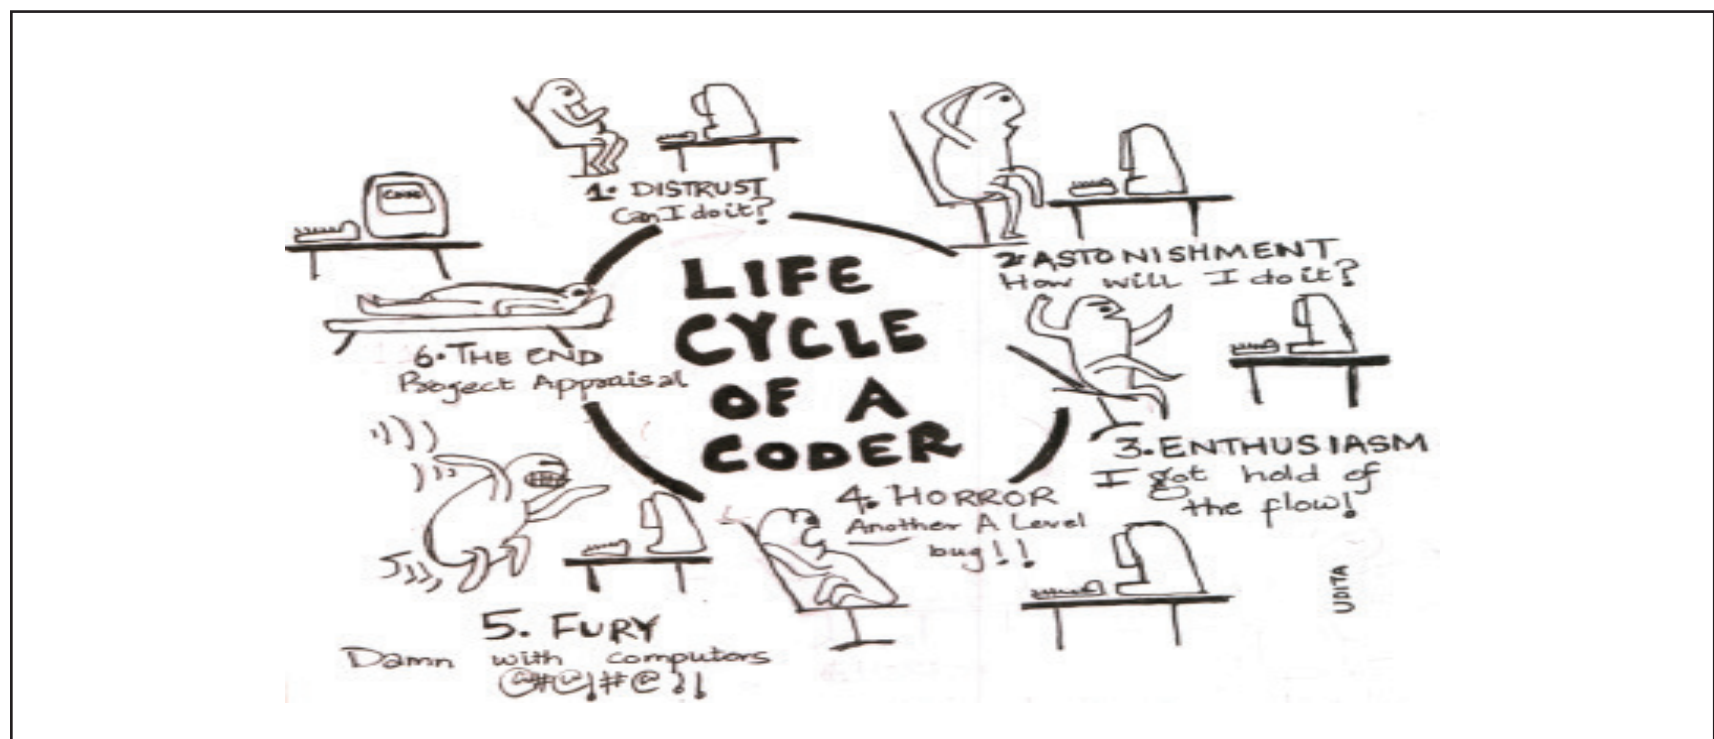 LIFE
CYCLE
OF A
CODER
1. DISTRUST
Can I do it?
2. ASTONISHMENT
How will I do it?
3. ENTHUSIASM
I got hold of
the flow!
4. HORROR
Another A Level
bug!!
5. FURY
Damn with computors
@#@!#@!!
6. THE END
Project Appraisal
UDITA